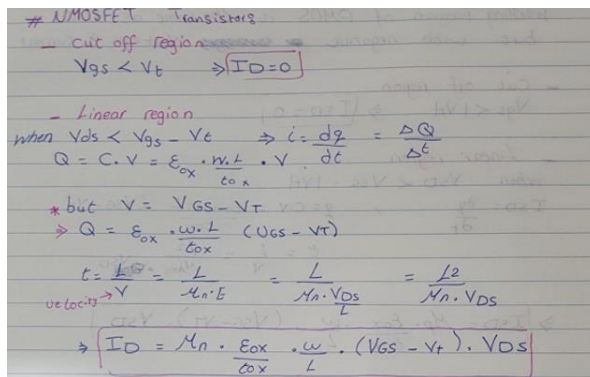 # NMOSFET Transistors
- cut off region
Vgs < Vt ⇒ ID=0
- Linear region
when Vds < Vgs - Vt ⇒ i = dq/dt = ΔQ/Δt
Q = C. V = εox . W.L/tox . V
* but V = VGS - VT
⇒ Q = εox . w.L/tox (UGS - VT)
t = L/V = L/μn.E = L/μn.VDS/L = L2/μn.VDS
velocity →
⇒ ID = μn . εox/tox . w/L . (VGS - Vt) . VDS